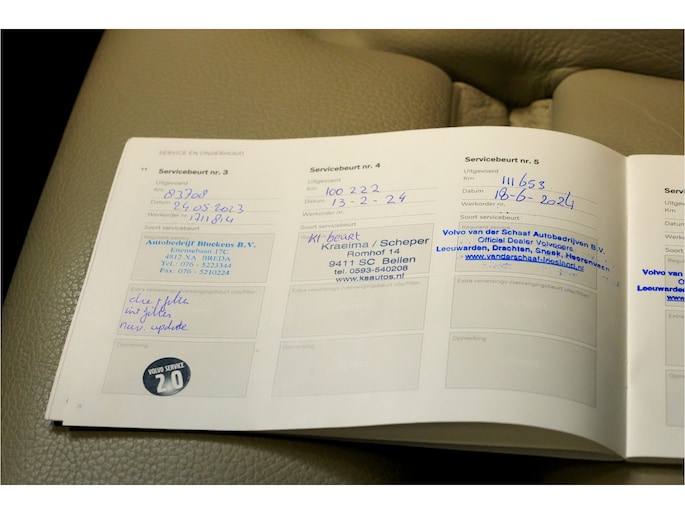 SERVICE EN ONDERHOUD
11 Servicebeurt nr. 3
Uitgevoerd
Km 83708
Datum 24.05 2023
Werkorder nr. 1711814
Soort servicebeurt
Autobedrijf Bluekens B.V.
Ettensebaan 17C
4812 XA BREDA
Tel.: 076 - 5223344
Fax: 076 - 5210224
Extra verversings-/vervangingsbeurt olie/filter
int filter
nav. update
Opmerking
VOLVO SERVICE
2.0
Servicebeurt nr. 4
Uitgevoerd
Km 100 222
Datum 13-2-24
Werkorder nr.
Soort servicebeurt
K1 beurt
Kraeima / Scheper
Romhof 14
9411 SC Beilen
tel. 0593-540208
www.ksautos.nl
Extra verversings-/vervangingsbeurt olie/filter
Opmerking
Servicebeurt nr. 5
Uitgevoerd
Km 111653
Datum 18-6-2024
Werkorder nr.
Soort servicebeurt
Volvo van der Schaaf Autobedrijven B.V.
Official Dealer Volvocars
Leeuwarden, Drachten, Sneek, Heerenveen
www.vanderschaaf-friesland.nl
Extra verversings-/vervangingsbeurt olie/filter
Opmerking
Uitgevoerd
Km
Datum
Volvo van
Leeuwarden
Extra
Opmerking